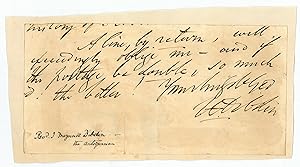 history of
A line, by return, will
exceedingly oblige me — and if
the postage be double, so much
the better.
TF Dibdin
Revd. T Frognall Dibdin —
the antiquarian